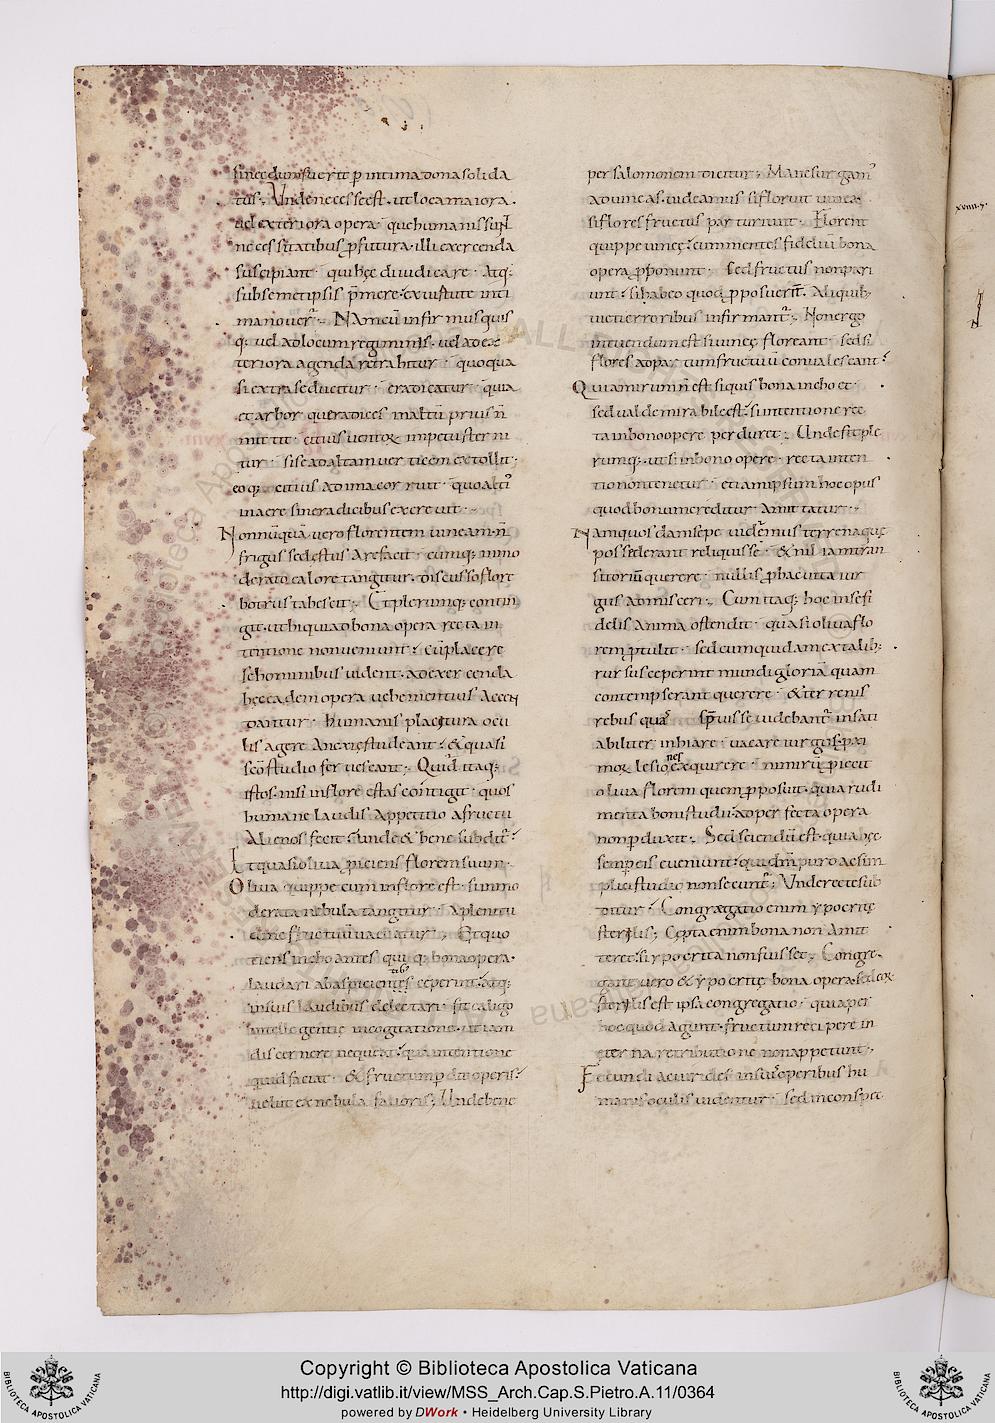 since duros fuerit p̄ intima dona solida
tus; Vnde necesse est · ut loca maiora ·
uel exteriora opera · que humanis sunt
necessitatibus ꝓfutura · illi exercenda
suscipiant · qui hęc diiudicare · Atq;
subsemetipsis p̄mere · ex uirtute inti
ma nouer̄; Nam cū infirmus quis
q; uel ad locum regiminis · uel ad ex
teriora agenda retrahitur · quo qua
si extra se ducitur · eradicatur · quia
et arbor que radices in altū prius n̄
mittit · citius uentoꝝ impetu sterni
tur · si se ad altam uerticem extollit ·
eoq; citius ad ima corruit · quo alti
in aere sine radicibus excreuit ·
Nonnūquā uero florentem uineam n̄
frigus sed ęstus arefacit · cumq; inmo
derato calore tangitur · discusso flore
botrus tabescit; Et plerumq; contin
git · ut hi qui ad bona opera recta in
tentione non ueniunt · cū placere
se hominibus uident · ad exercenda
hęc eadem opera uehementius accen
dantur · humanis placitura ocu
lis agere anxię studeant · & quasi
scō studio feruescant; Quid itaq;
istos nisi in flore estas contigit · quos
humane laudis appetitio a fructu
alienos fecit · unde & bene subditr̄ ·
Et quasi oliua ꝓiciens florem suum ·
Oliua quippe cum in flore est · si inmo
derata nebula tangitur · a plenitu
dine fructuū uacuatur; Et quo
tiens inchoantes quiq; bona opera ·
laudari ab aspicientibus ceperint · atq;
in suis laudibus delectari · fit caligo
intellegentię in cogitatione · ut iam
discernere nequeat · qua intentione
quid faciat · & fructum ꝑdat operis ·
uelut ex nebula fauoris; Vnde bene
per salomonem dicitur; Mane surgam̄
ad uineas · uideamus si floruit uinea ·
si flores fructus parturiunt · Florent
quippe uineę · cum mentes fideliū bona
opera ꝓponunt · Sed fructus non pari
unt · si ab eo quod ꝓposuerit̄ · Aliquib;
uicti erroribus infirmantr̄; Non ergo
intuendum est si uineę floreant · sed si
flores ad partum fructuū conualescant ·
Quia mirum n̄ est siquis bona inchoet ·
sed ualde mirabile est · si intentione rec
ta in bono opere perduret; Unde fit ple
rumq; · ut si in bono opere · recta inten
tio non tenetur · etiam ipsum hoc opus
quod bonum creditur · amittatur ·
Nam quosdam sepe uidemus terrena que
possederant reliquisse · & nil iam tran
sitoriū querere · nullis ꝓ hac uita iur
gus admisceri; Cum itaq; hoc in se fi
delis anima ostendit · quasi oliua flo
rem ꝓtulit · sed cum quidam ex talib;
rursus ceperint mundi gloriam quam
contempserant querere · & terrenis
rebus quas spreuisse uidebantr̄ insati
abiliter inhiare · uacare iurgiis · pxi
moꝝ lesiones exquirere · nimirū ꝓiecit
oliua florem quem ꝓposuit · quia rudi
menta boni studii · ad perfecta opera
non ꝑduxit; Sed sciendū est · quia hęc
semper eis eueniunt · qui dm̄ puro ac sim
plici studio non secuntr̄; Vnde recte sub
ditur · Congregatio enim ypocritę
sterilis; Cępta enim bona non amit
teret · si ypocrita non fuisset; Congre
gant uero & ypocritę bona opera · sed eoꝝ
sterilis est ipsa congregatio · quia per
hoc quod agunt · fructum recipere in
ęterna retributione non appetunt;
Fecundi ac uirides in suis operibus hu
manis oculis uidentur · sed in conspec
xviiii.
Copyright © Biblioteca Apostolica Vaticana
http://digi.vatlib.it/view/MSS_Arch.Cap.S.Pietro.A.11/0364
powered by DWork • Heidelberg University Library
BIBLIOTECA APOSTOLICA VATICANA
BIBLIOTECA APOSTOLICA VATICANA